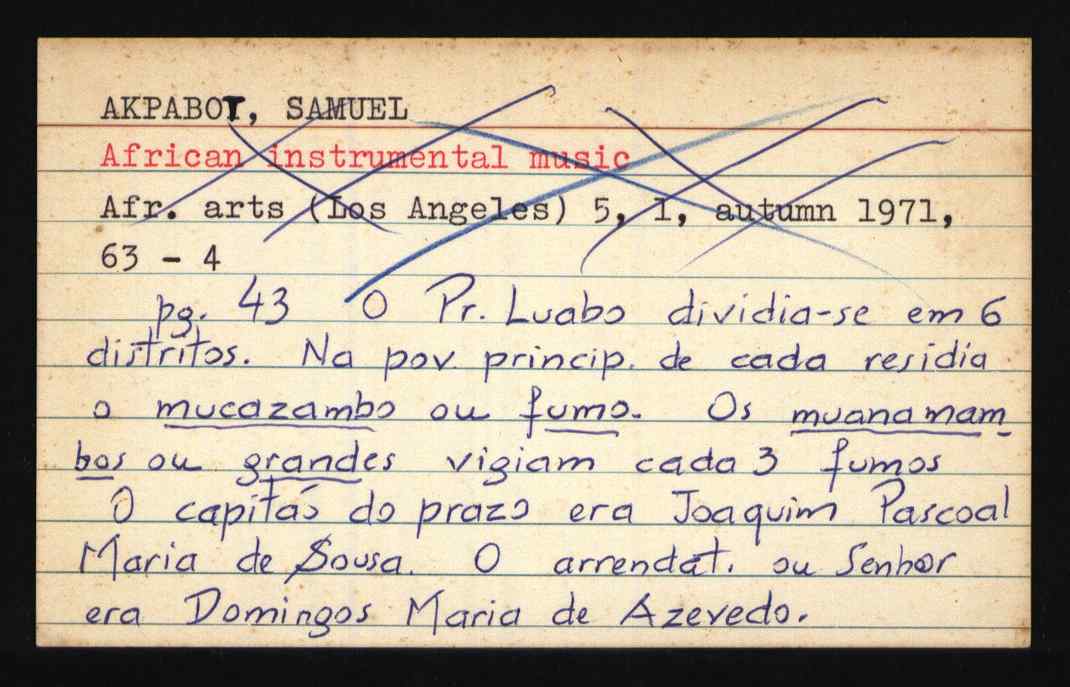 AKPABOT, SAMUEL
African instrumental music
Afr. arts (Los Angeles) 5, 1, autumn 1971,
63 - 4
pg. 43 O Pr. Luabo dividia-se em 6
distritos. Na pov. princip. de cada residia
o mucazambo ou fumo. Os muanamam-
bos ou grandes vigiam cada 3 fumos
O capitão do prazo era Joaquim Pascoal
Maria de Sousa. O arrendat. ou Senhor
era Domingos Maria de Azevedo.